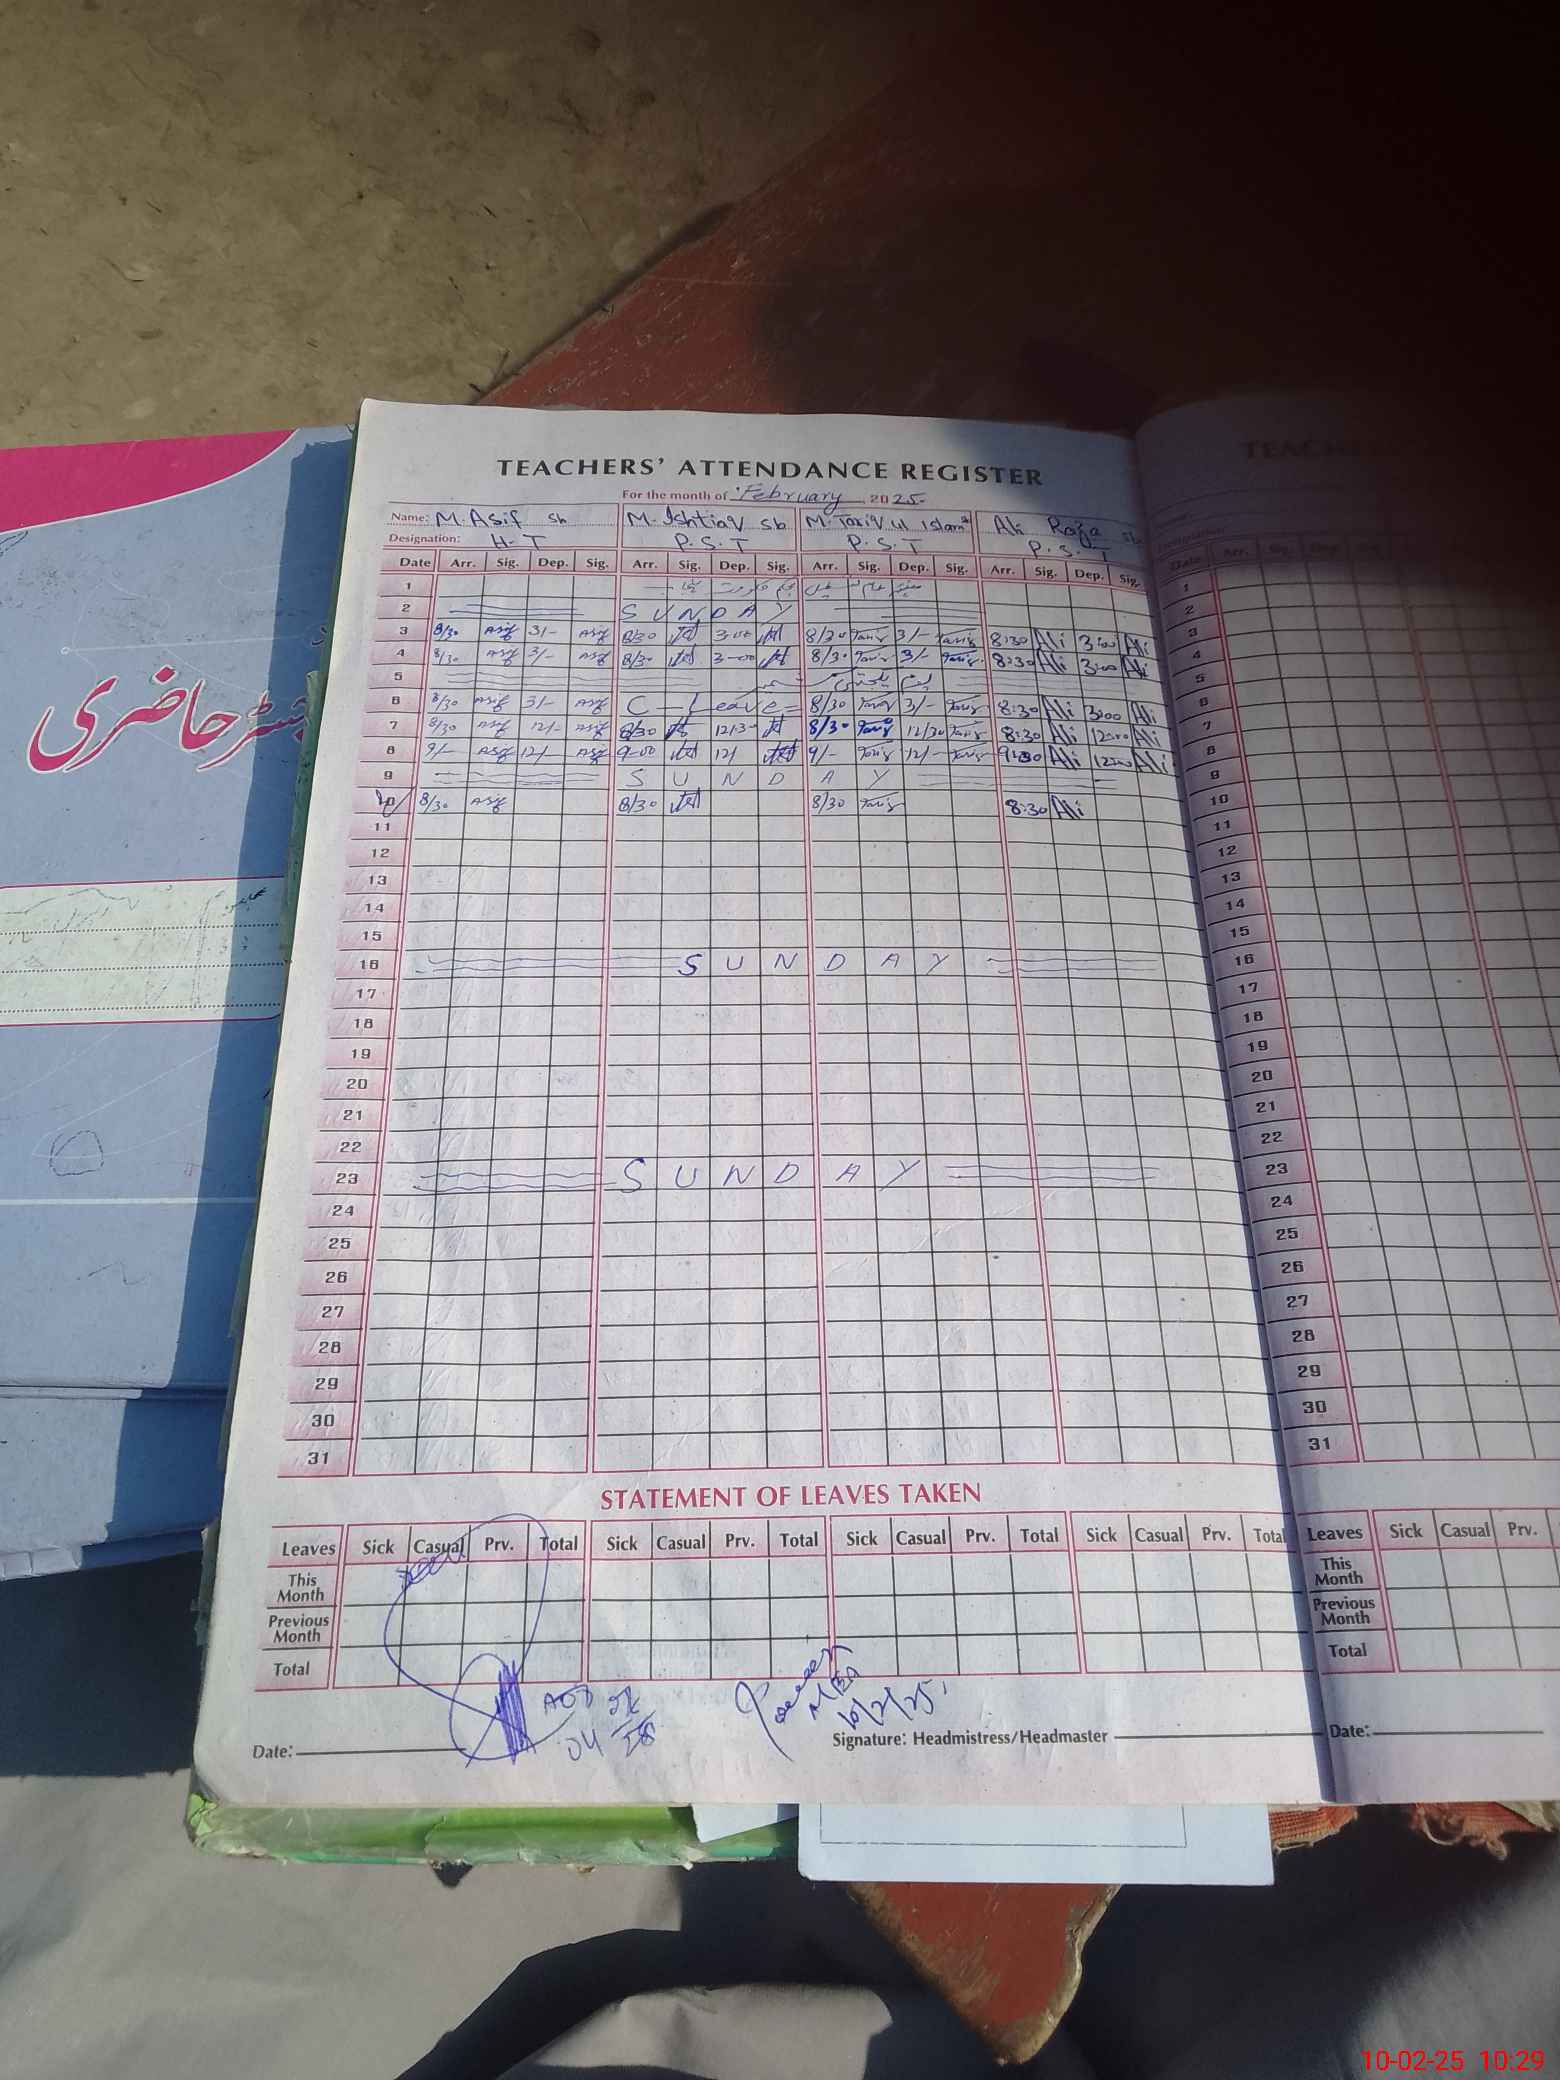 TEACHERS' ATTENDANCE REGISTER
For the month of February, 2025
Name: M. Asif sb M. Ishtiaq sb M. Tariq ul Islam sb Ali Raza sb
Designation: H-T P.S.T P.S.T P.S.T
Date Arr. Sig. Dep. Sig. Arr. Sig. Dep. Sig. Arr. Sig. Dep. Sig. Arr. Sig. Dep. Sig.
1
2 SUNDAY
3 8/30 Asif 3/- Asif 8/30 3-00 8/30 Tariq 3/- Tariq 8:30 Ali 3:00 Ali
4 8/30 Asif 3/- Asif 8/30 3-00 8/30 Tariq 3/- Tariq 8:30 Ali 3:00 Ali
5
6 8/30 Asif 3/- Asif C-Leave 8/30 Tariq 3/- Tariq 8:30 Ali 3:00 Ali
7 8/30 Asif 12/- Asif 8/30 12:30 8/30 Tariq 12/30 Tariq 8:30 Ali Ali
8 9/- Asif 12/- Asif 9-00 12/ 9/- Tariq 12/- Tariq Ali Ali
9 SUNDAY
10 8/30 Asif 8/30 8/30 Tariq 8:30 Ali
11
12
13
14
15
16 SUNDAY
17
18
19
20
21
22
23 SUNDAY
24
25
26
27
28
29
30
31
STATEMENT OF LEAVES TAKEN
Leaves Sick Casual Prv. Total Sick Casual Prv. Total Sick Casual Prv. Total Sick Casual Prv. Total
This Month
Previous Month
Total
Date:
Signature: Headmistress/Headmaster
TEACHE
Date Arr. Sig. Dep.
1
2
3
4
5
6
7
8
9
10
11
12
13
14
15
16
17
18
19
20
21
22
23
24
25
26
27
28
29
30
31
Leaves Sick Casual Prv.
This Month
Previous Month
Total
Date:
حاضری
10-02-25 10:29